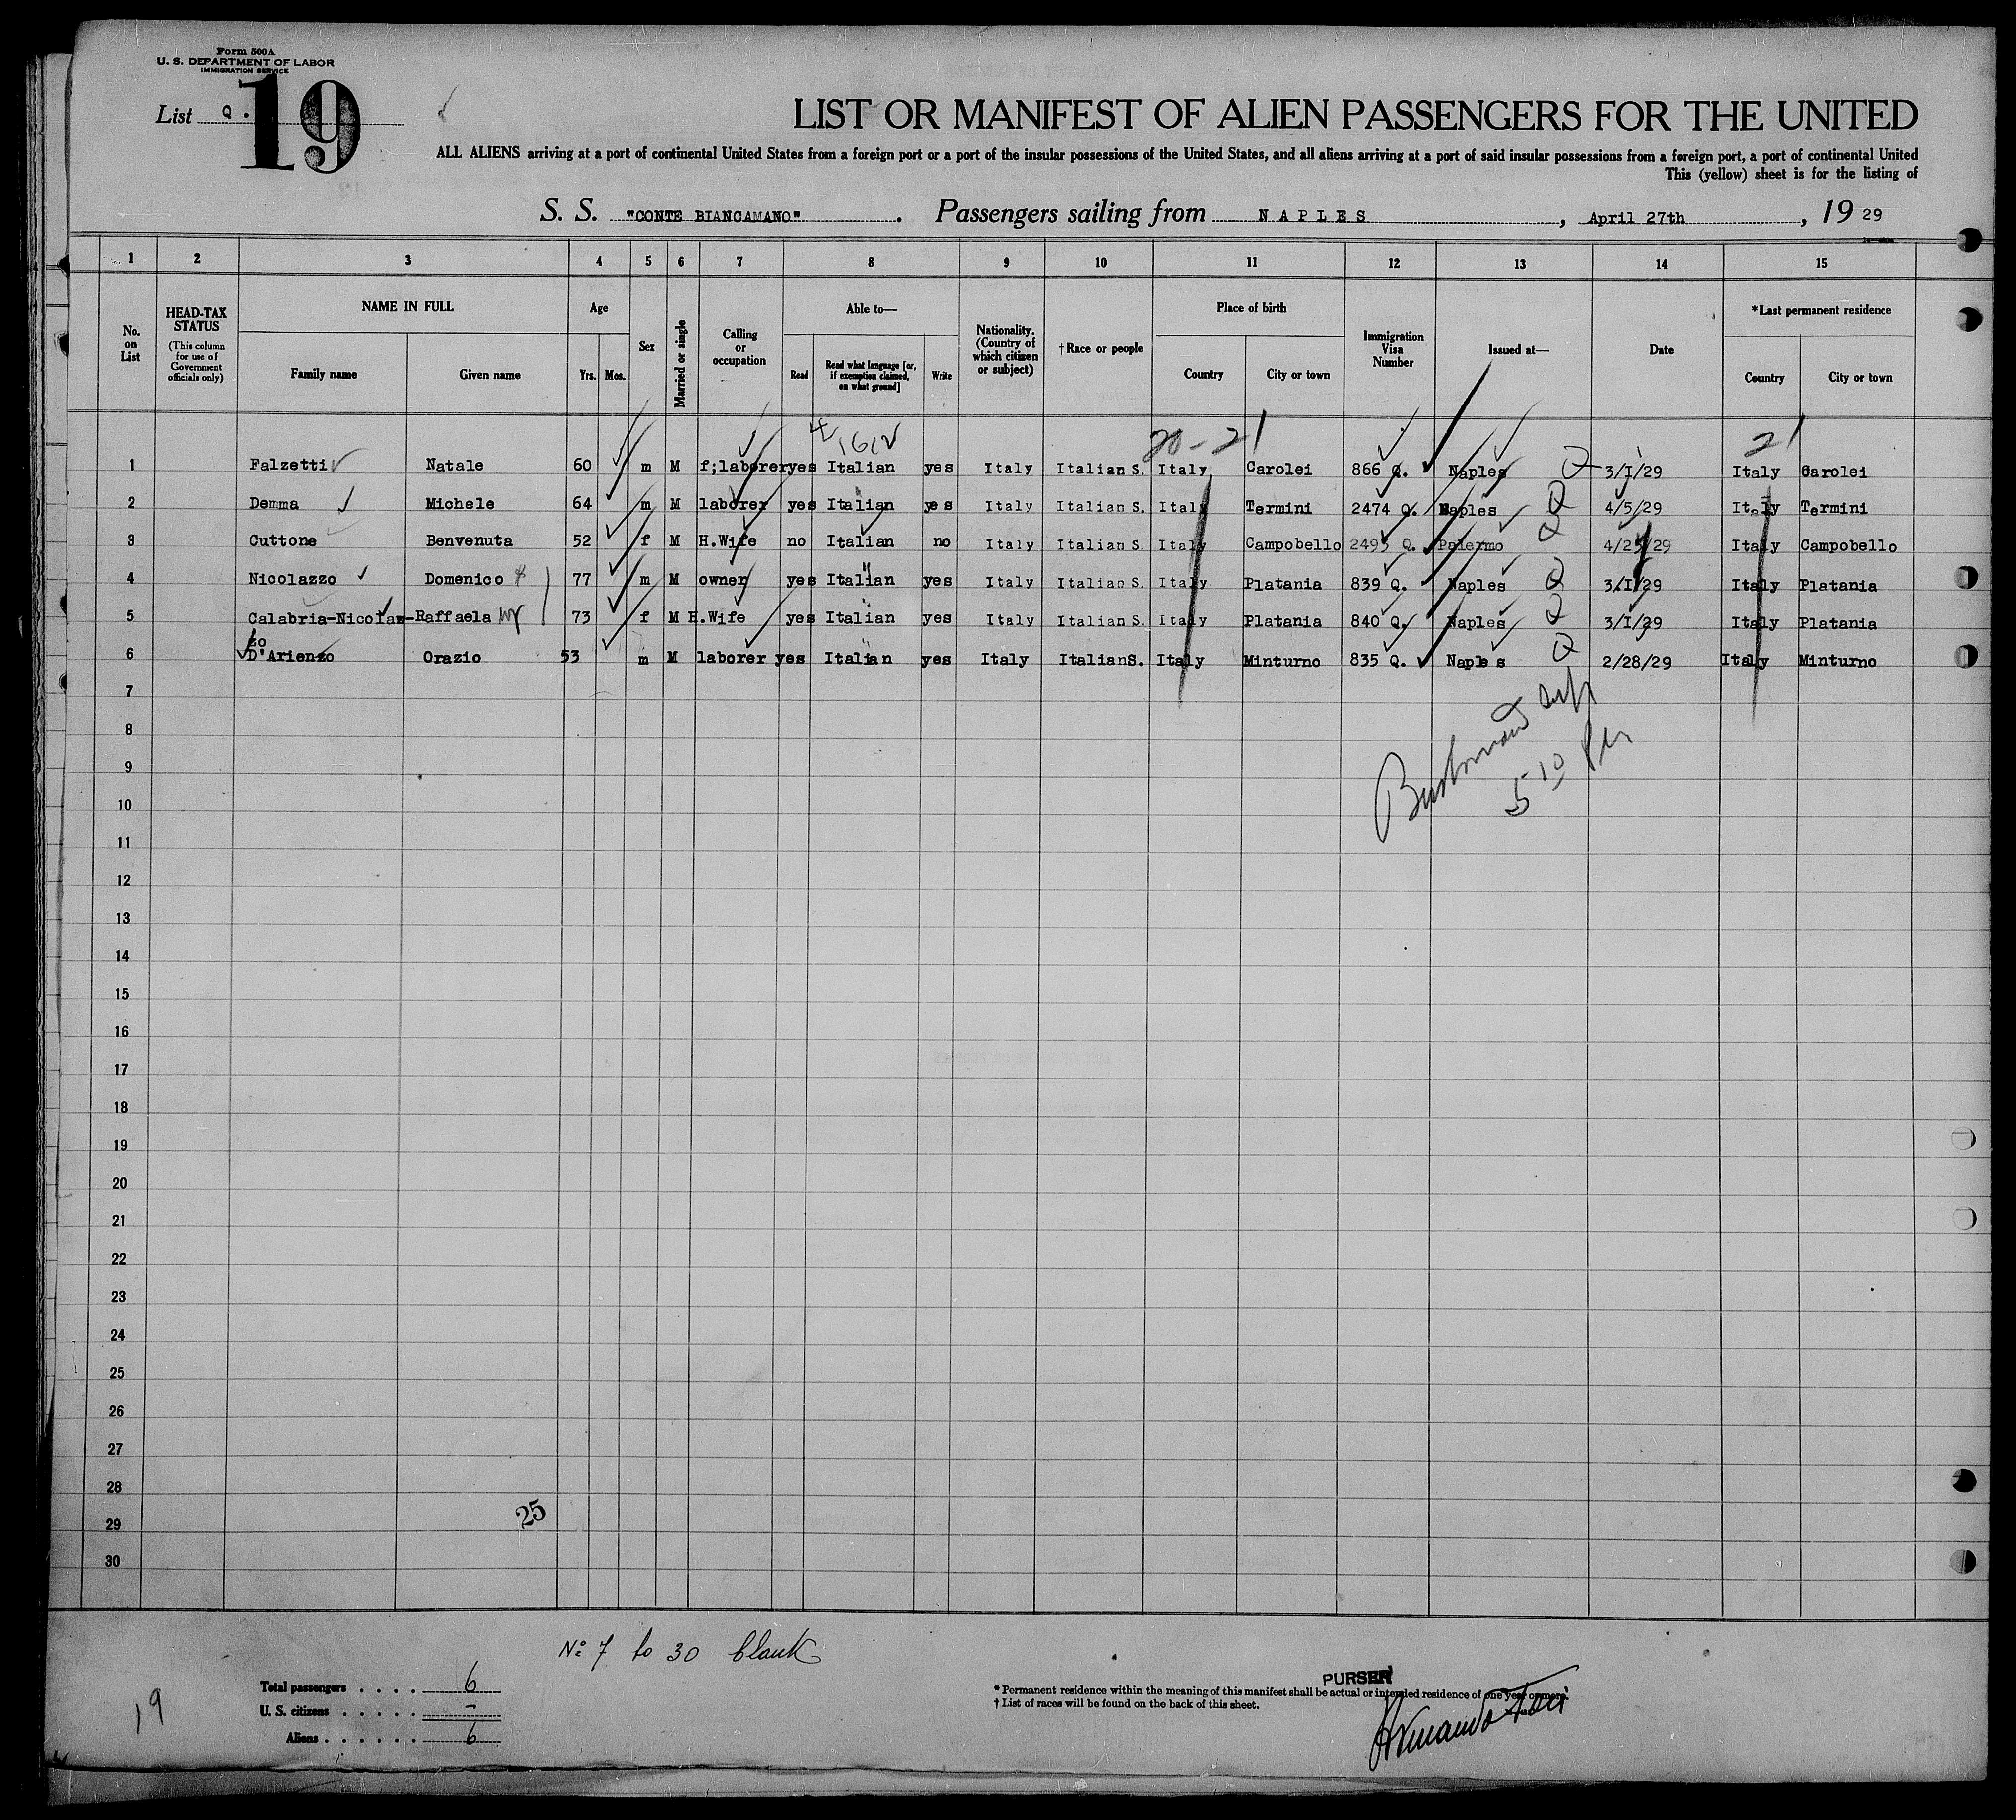 Form 500A
U. S. DEPARTMENT OF LABOR
IMMIGRATION SERVICE
List Q. 19
LIST OR MANIFEST OF ALIEN PASSENGERS FOR THE UNITED
ALL ALIENS arriving at a port of continental United States from a foreign port or a port of the insular possessions of the United States, and all aliens arriving at a port of said insular possessions from a foreign port, a port of continental United
This (yellow) sheet is for the listing of
S. S. "CONTE BIANCAMANO". Passengers sailing from NAPLES, April 27th, 19 29
1 2 3 4 5 6 7 8 9 10 11 12 13 14 15
No. on List
HEAD-TAX STATUS
(This column for use of Government officials only)
NAME IN FULL
Family name Given name
Age
Yrs. Mos.
Sex
Married or single
Calling or occupation
Able to—
Read Read what language [or, if exemption claimed, on what ground] Write
Nationality. (Country of which citizen or subject)
†Race or people
Place of birth
Country City or town
Immigration Visa Number
Issued at—
Date
*Last permanent residence
Country City or town
20-21 21
1 Falzetti Natale 60 m M f;laborer yes Italian yes Italy Italian S. Italy Carolei 866 Q. Naples Q 3/I/29 Italy Carolei
2 Demma Michele 64 m M laborer yes Italian yes Italy Italian S. Italy Termini 2474 Q. Naples Q 4/5/29 Italy Termini
3 Cuttone Benvenuta 52 f M H.Wife no Italian no Italy Italian S. Italy Campobello 2495 Q. Palermo Q 29 Italy Campobello
4 Nicolazzo Domenico 77 m M owner yes Italian yes Italy Italian S. Italy Platania 839 Q. Naples Q 3/I/29 Italy Platania
5 Calabria-Nicolaz- Raffaela wf 73 f M H.Wife yes Italian yes Italy Italian S. Italy Platania 840 Q. Naples Q 3/I/29 Italy Platania
zo
6 D'Arienzo Orazio 53 m M laborer yes Italian yes Italy Italian S. Italy Minturno 835 Q. Naples Q 2/28/29 Italy Minturno
7
8
9
10
11
12
13
14
15
16
17
18
19
20
21
22
23
24
25
26
27
28
29
30
5 10 PM
25
No 7 to 30 blank
19
Total passengers . . . . 6
U. S. citizens . . . . . -
Aliens . . . . . . 6
PURSER
* Permanent residence within the meaning of this manifest shall be actual or intended residence of one year or more.
† List of races will be found on the back of this sheet.